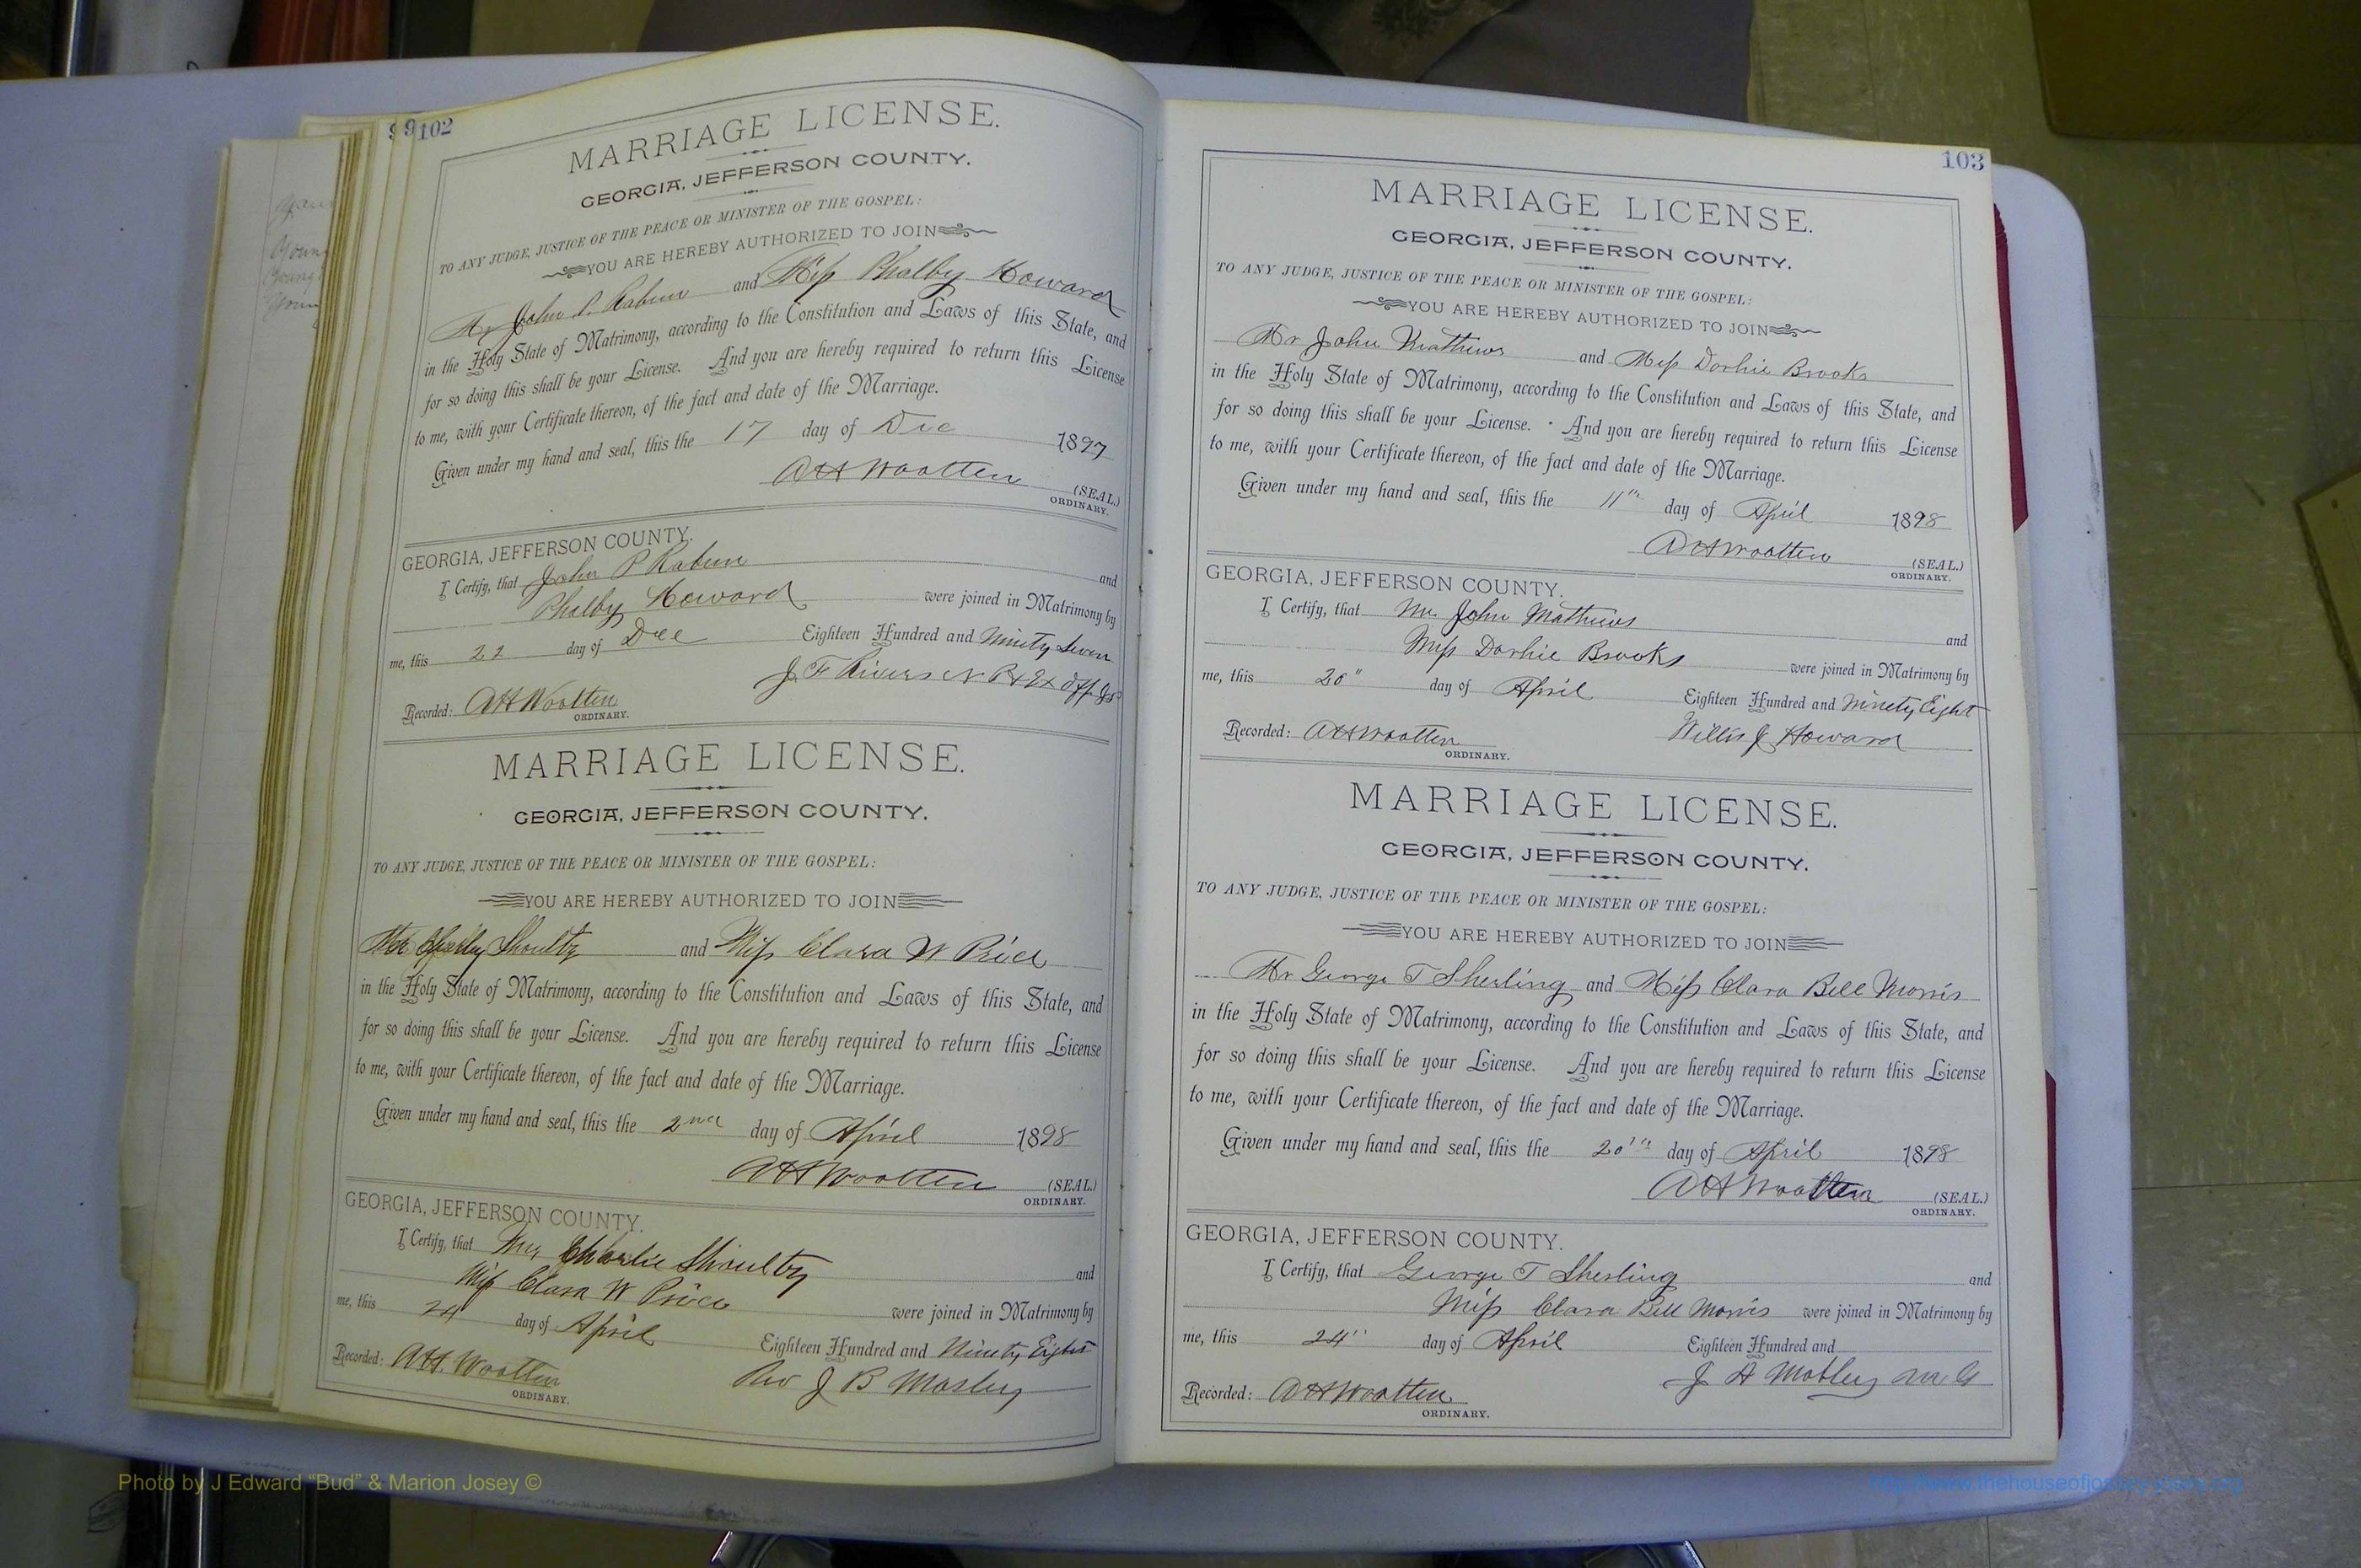 102
MARRIAGE LICENSE.
GEORGIA, JEFFERSON COUNTY.
TO ANY JUDGE, JUSTICE OF THE PEACE OR MINISTER OF THE GOSPEL:
YOU ARE HEREBY AUTHORIZED TO JOIN
Mr John P. Rabun and Miss Phalby Howard
in the Holy State of Matrimony, according to the Constitution and Laws of this State, and
for so doing this shall be your License. And you are hereby required to return this License
to me, with your Certificate thereon, of the fact and date of the Marriage.
Given under my hand and seal, this the 17 day of Dec 1897
A H Wootten (SEAL.)
ORDINARY.
GEORGIA, JEFFERSON COUNTY.
I Certify, that John P Rabun and
Phalby Howard were joined in Matrimony by
me, this 22 day of Dec Eighteen Hundred and Ninety Seven
J F Rivers N P & Ex Off J P
Recorded: A H Wootten
ORDINARY.
MARRIAGE LICENSE.
GEORGIA, JEFFERSON COUNTY.
TO ANY JUDGE, JUSTICE OF THE PEACE OR MINISTER OF THE GOSPEL:
YOU ARE HEREBY AUTHORIZED TO JOIN
Mr Charley Shoultz and Miss Clara W Price
in the Holy State of Matrimony, according to the Constitution and Laws of this State, and
for so doing this shall be your License. And you are hereby required to return this License
to me, with your Certificate thereon, of the fact and date of the Marriage.
Given under my hand and seal, this the 2nd day of April 1898
A H Wootten (SEAL.)
ORDINARY.
GEORGIA, JEFFERSON COUNTY.
I Certify, that Mr Charlie Shoultz and
Miss Clara W Price were joined in Matrimony by
me, this 24 day of April Eighteen Hundred and Ninety Eight
Rev J B Mosley
Recorded: A H. Wootten
ORDINARY.
103
MARRIAGE LICENSE.
GEORGIA, JEFFERSON COUNTY.
TO ANY JUDGE, JUSTICE OF THE PEACE OR MINISTER OF THE GOSPEL:
YOU ARE HEREBY AUTHORIZED TO JOIN
Mr John Mathews and Miss Dorhie Brooks
in the Holy State of Matrimony, according to the Constitution and Laws of this State, and
for so doing this shall be your License. And you are hereby required to return this License
to me, with your Certificate thereon, of the fact and date of the Marriage.
Given under my hand and seal, this the 11th day of April 1898
A H Wootten (SEAL.)
ORDINARY.
GEORGIA, JEFFERSON COUNTY.
I Certify, that Mr. John Mathews and
Miss Dorhie Brooks were joined in Matrimony by
me, this 20" day of April Eighteen Hundred and Ninety Eight
Willis J Howard
Recorded: A H Wootten
ORDINARY.
MARRIAGE LICENSE.
GEORGIA, JEFFERSON COUNTY.
TO ANY JUDGE, JUSTICE OF THE PEACE OR MINISTER OF THE GOSPEL:
YOU ARE HEREBY AUTHORIZED TO JOIN
Mr George T Sherling and Miss Clara Bell Morris
in the Holy State of Matrimony, according to the Constitution and Laws of this State, and
for so doing this shall be your License. And you are hereby required to return this License
to me, with your Certificate thereon, of the fact and date of the Marriage.
Given under my hand and seal, this the 20th day of April 1898
A H Wootten (SEAL.)
ORDINARY.
GEORGIA, JEFFERSON COUNTY.
I Certify, that George T Sherling and
Miss Clara Bell Morris were joined in Matrimony by
me, this 24" day of April Eighteen Hundred and
J A Mobley M G
Recorded: A H Wootten
ORDINARY.
Photo by J Edward “Bud” & Marion Josey ©